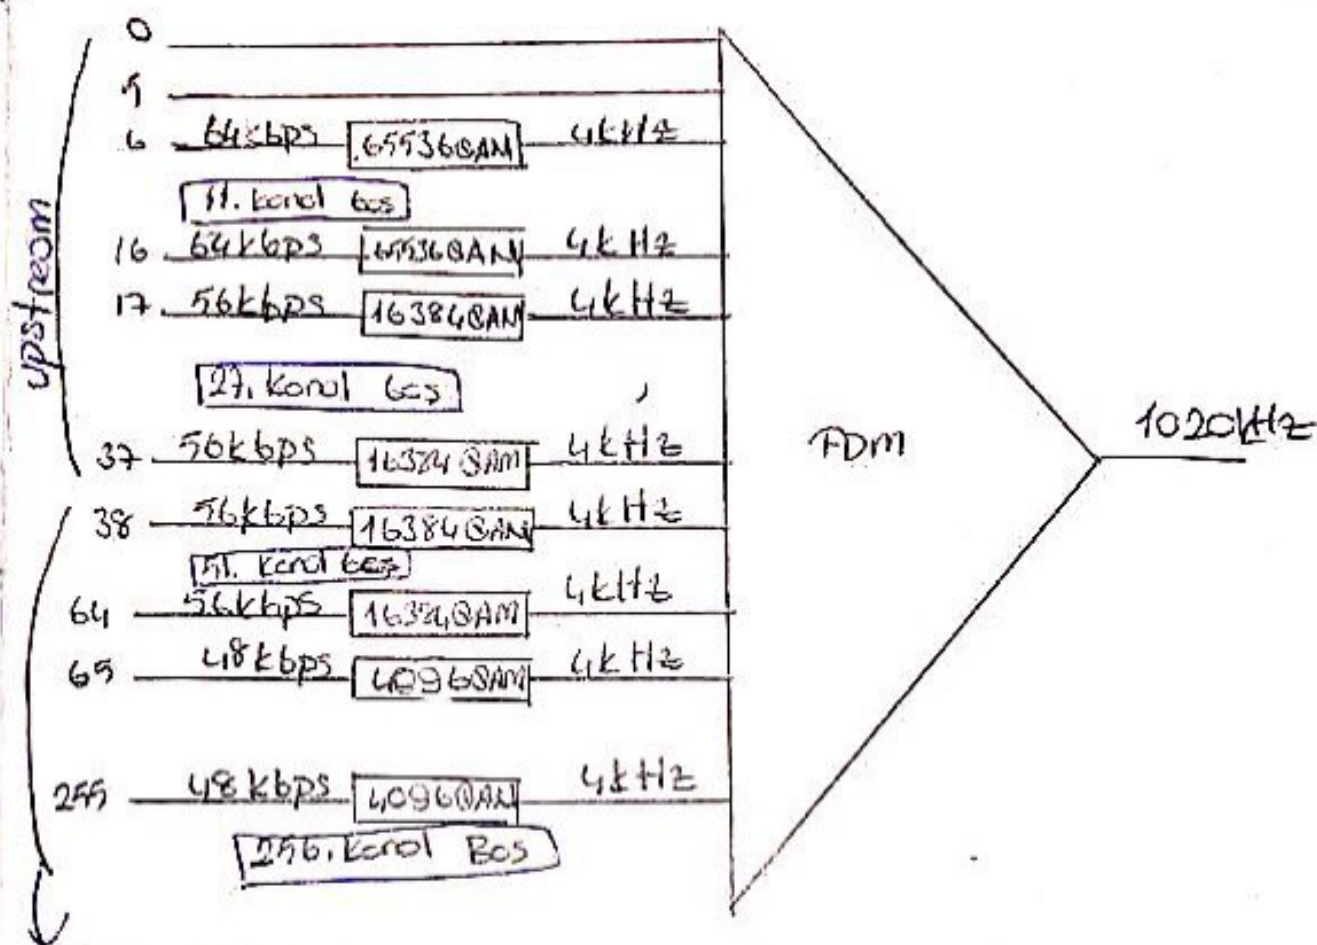 upstream
0
5
6 64kbps 65536QAM 4kHz
11. kanal boş
16 64kbps 65536QAM 4kHz
17 56kbps 16384QAM 4kHz
27. kanal boş
37 56kbps 16384QAM 4kHz
38 56kbps 16384QAM 4kHz
51. kanal boş
64 56kbps 16384QAM 4kHz
65 48kbps 4096QAM 4kHz
255 48kbps 4096QAM 4kHz
256. kanal Boş
FDM
1020kHz